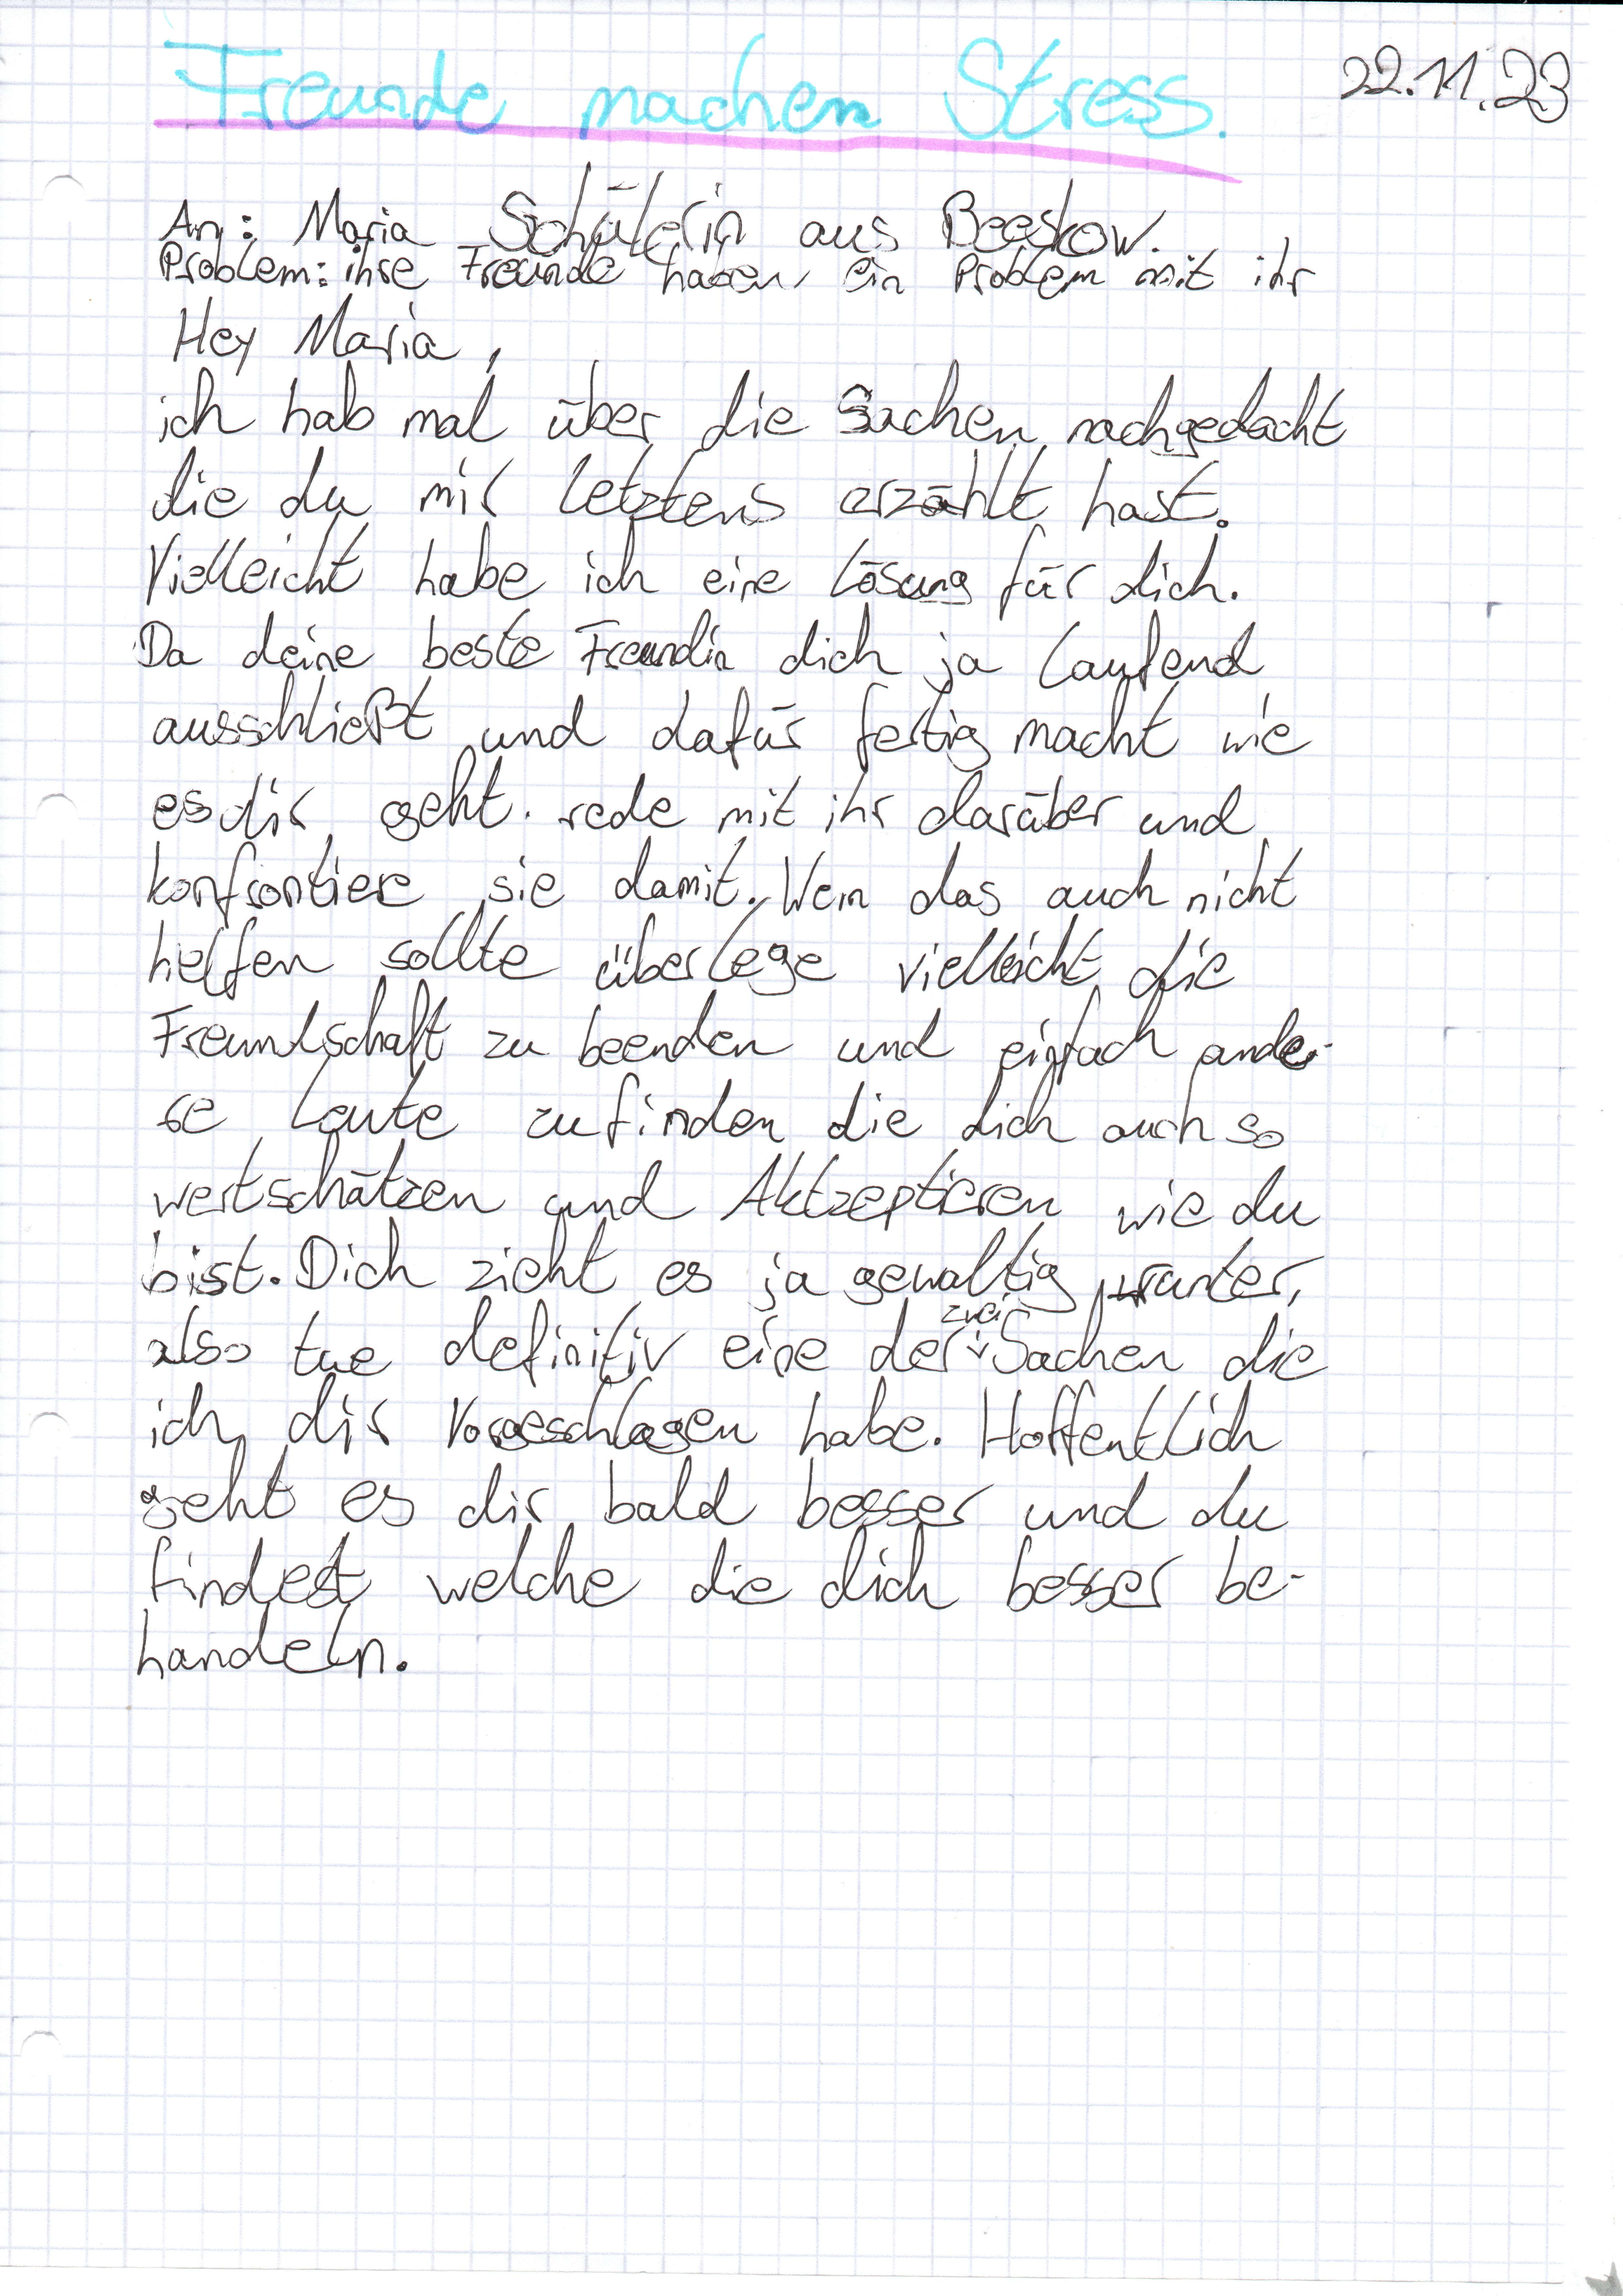 Freunde machen Stress.
22.11.23
An: Maria Schülerin aus Beeskow.
Problem: ihre Freunde haben ein Problem mit ihr
Hey Maria,
ich hab mal über die Sachen nachgedacht
die du mir letztens erzählt hast.
Vielleicht habe ich eine Lösung für dich.
Da deine beste Freundin dich ja laufend
ausschließt und dafür fertig macht wie
es dir geht. rede mit ihr darüber und
konfrontiere sie damit. Wenn das auch nicht
helfen sollte überlege vielleicht die
Freundschaft zu beenden und einfach ande-
re Leute zufinden die dich auch so
wertschätzen und Aktzeptieren wie du
bist. Dich zieht es ja gewaltig runter,
also tue definitiv eine der zwei Sachen die
ich dir Vorgeschlagen habe. Hoffentlich
geht es dir bald besser und du
findest welche die dich besser be-
handeln.